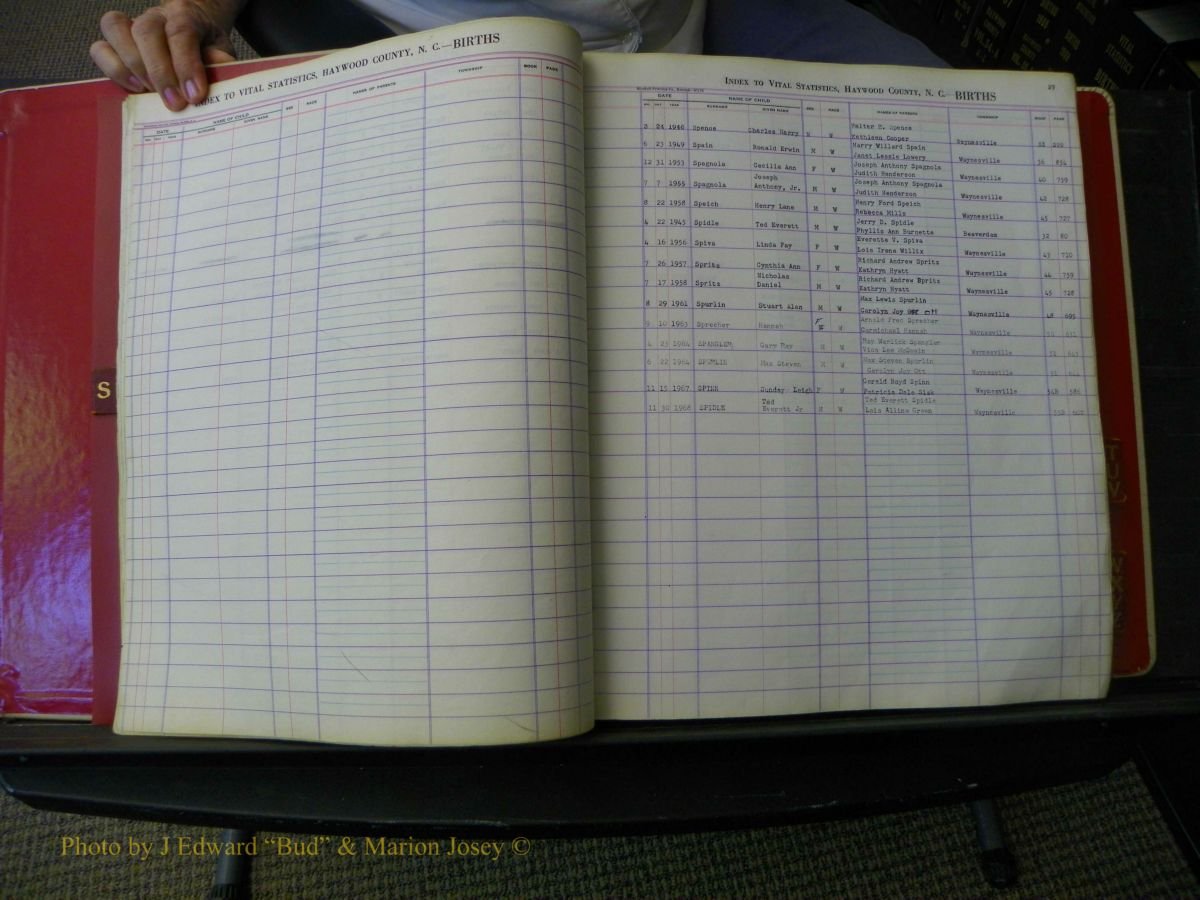 INDEX TO VITAL STATISTICS, HAYWOOD COUNTY, N. C.—BIRTHS
DATE NAME OF CHILD SEX RACE NAMES OF PARENTS TOWNSHIP BOOK PAGE
SURNAME GIVEN NAME
S
INDEX TO VITAL STATISTICS, HAYWOOD COUNTY, N. C.—BIRTHS
DATE NAME OF CHILD SEX RACE NAMES OF PARENTS TOWNSHIP BOOK PAGE
SURNAME GIVEN NAME
Walter E. Spence
3 24 1948 Spence Charles Harry M W Kathleen Cooper Waynesville
Harry Willard Spain
6 23 1949 Spain Ronald Erwin M W Janet Lessie Lowery Waynesville 36 854
Joseph Anthony Spagnola
12 31 1953 Spagnola Cecilia Ann F W Judith Henderson Waynesville 40 759
Joseph Joseph Anthony Spagnola
7 7 1955 Spagnola Anthony, Jr. M W Judith Henderson Waynesville 42 728
Henry Ford Speich
8 22 1958 Speich Henry Lane M W Rebecca Mills Waynesville 45 727
Jerry D. Spidle
4 22 1945 Spidle Ted Everett M W Phyllis Ann Burnette Beaverdam 32 80
Everette V. Spiva
4 16 1956 Spiva Linda Fay F W Lois Irene Willix Waynesville 43 710
Richard Andrew Spritz
7 26 1957 Spritz Cynthia Ann F W Kathryn Hyatt Waynesville 44 759
Nicholas Richard Andrew Spritz
7 17 1958 Spritz Daniel M W Kathryn Hyatt Waynesville 45 728
Max Lewis Spurlin
8 29 1961 Spurlin Stuart Alan M W Carolyn Joy Ott Waynesville 48 695
Arnold Fred Sprecher
9 10 1963 Sprecher Hannah F W Carmichael Hannah Waynesville
Ray Warlick Spangler
4 23 1964 SPANGLER Gary Ray M W Waynesville
Max Steven Spurlin
6 22 1964 SPURLIN Max Steven M W Carolyn Joy Ott Waynesville
Gerald Boyd Spinn
11 15 1967 SPINN Sunday Leigh F W Patricia Dale Sisk Waynesville 54B 586
Ted Ted Everett Spidle
11 30 1968 SPIDLE Everett Jr M W Lois Alline Green Waynesville 55B
VITAL STATISTICS
TUV
Photo by J Edward “Bud” & Marion Josey ©